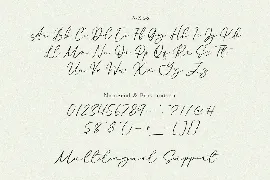 Aa Bb Cc Dd Ee Ff Gg Hh Ii Jj Kk
Ll Mm Nn Oo Pp Qq Rr Ss Tt
Uu Vv Ww Xx Yy Zz
Numeral & Punctuation
0123456789
Multilingual Support